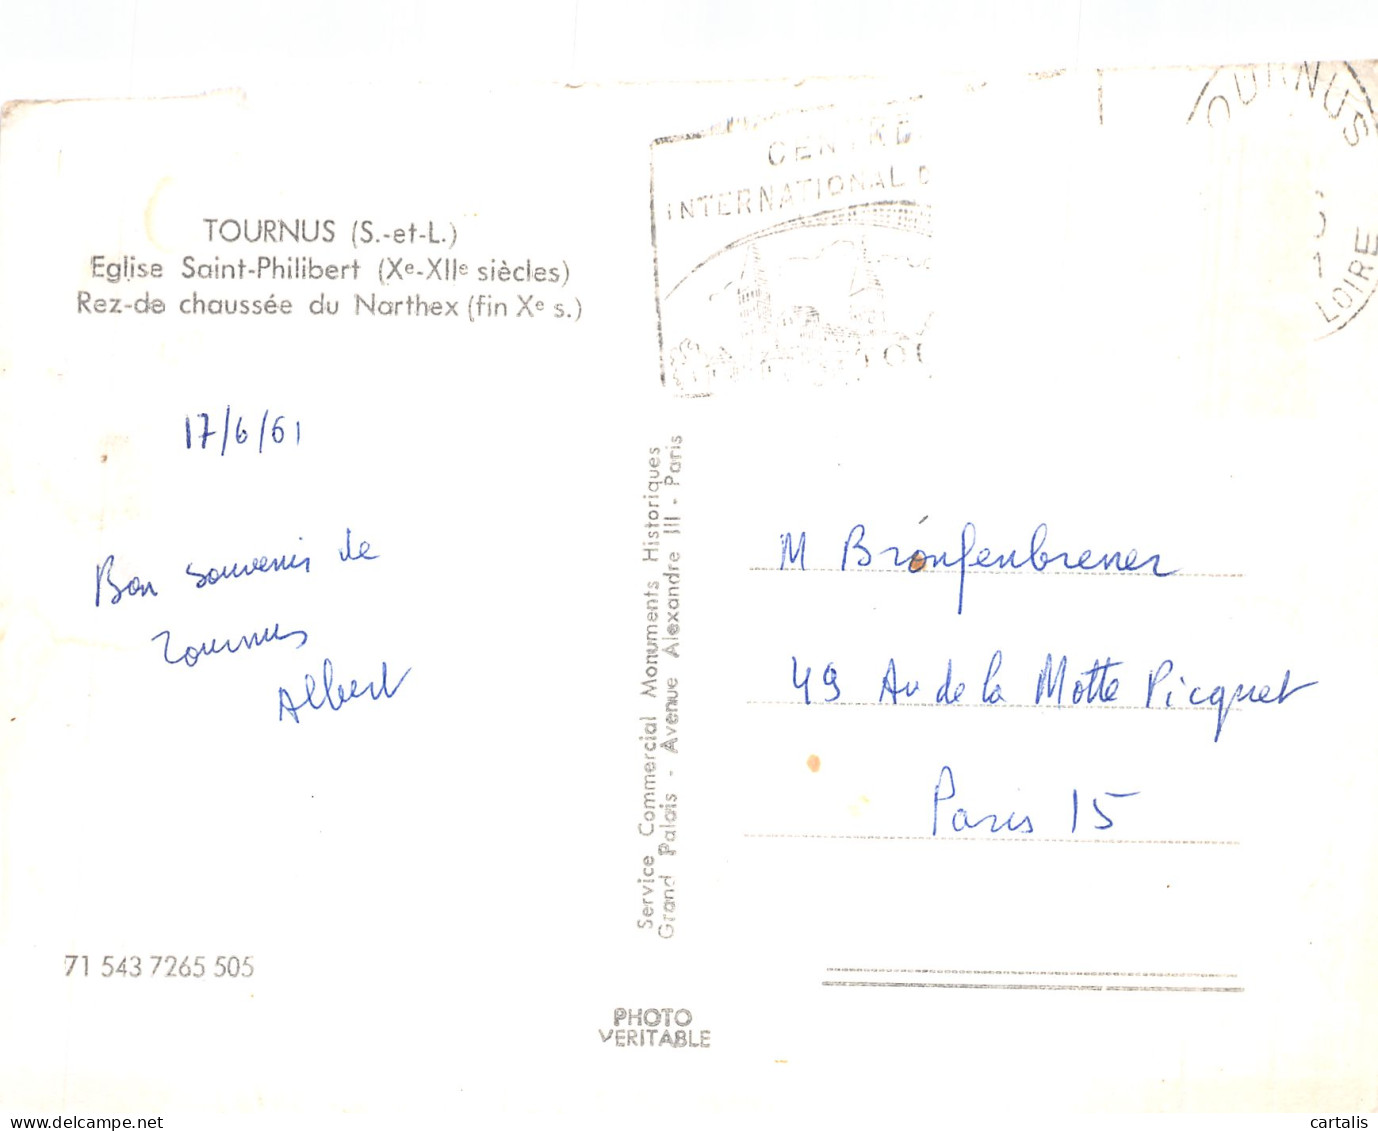 TOURNUS (S.-et-L.)
Eglise Saint-Philibert (Xe-XIIe siècles)
Rez-de chaussée du Narthex (fin Xe s.)
17/6/61
Bon souvenir de
Tournus
Albert
71 543 7265 505
CENTRE
INTERNATIONAL D
TOU
OURNUS
LOIRE
Service Commercial Monuments Historiques
Grand Palais - Avenue Alexandre III - Paris
PHOTO
VERITABLE
M Bronfenbrener
49 Av de la Motte Picquet
Paris 15
cartalis
delcampe.net